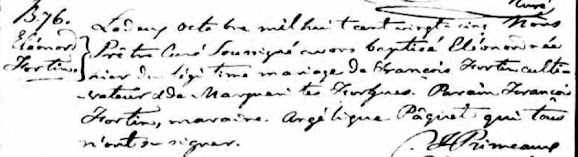 Curé
B.76. Le deux octobre mil huit cent vingt cinq Nous
Eléonord Prêtre Curé Soussigné avons baptisé Eléonord née
Fortin hier du légitime mariage de François Fortin culti-
-vateur & de Marguerites Forgues. Parain François
Fortin, maraine Angélique Pâquet qui tous
n'ont su signer.
Primeaux